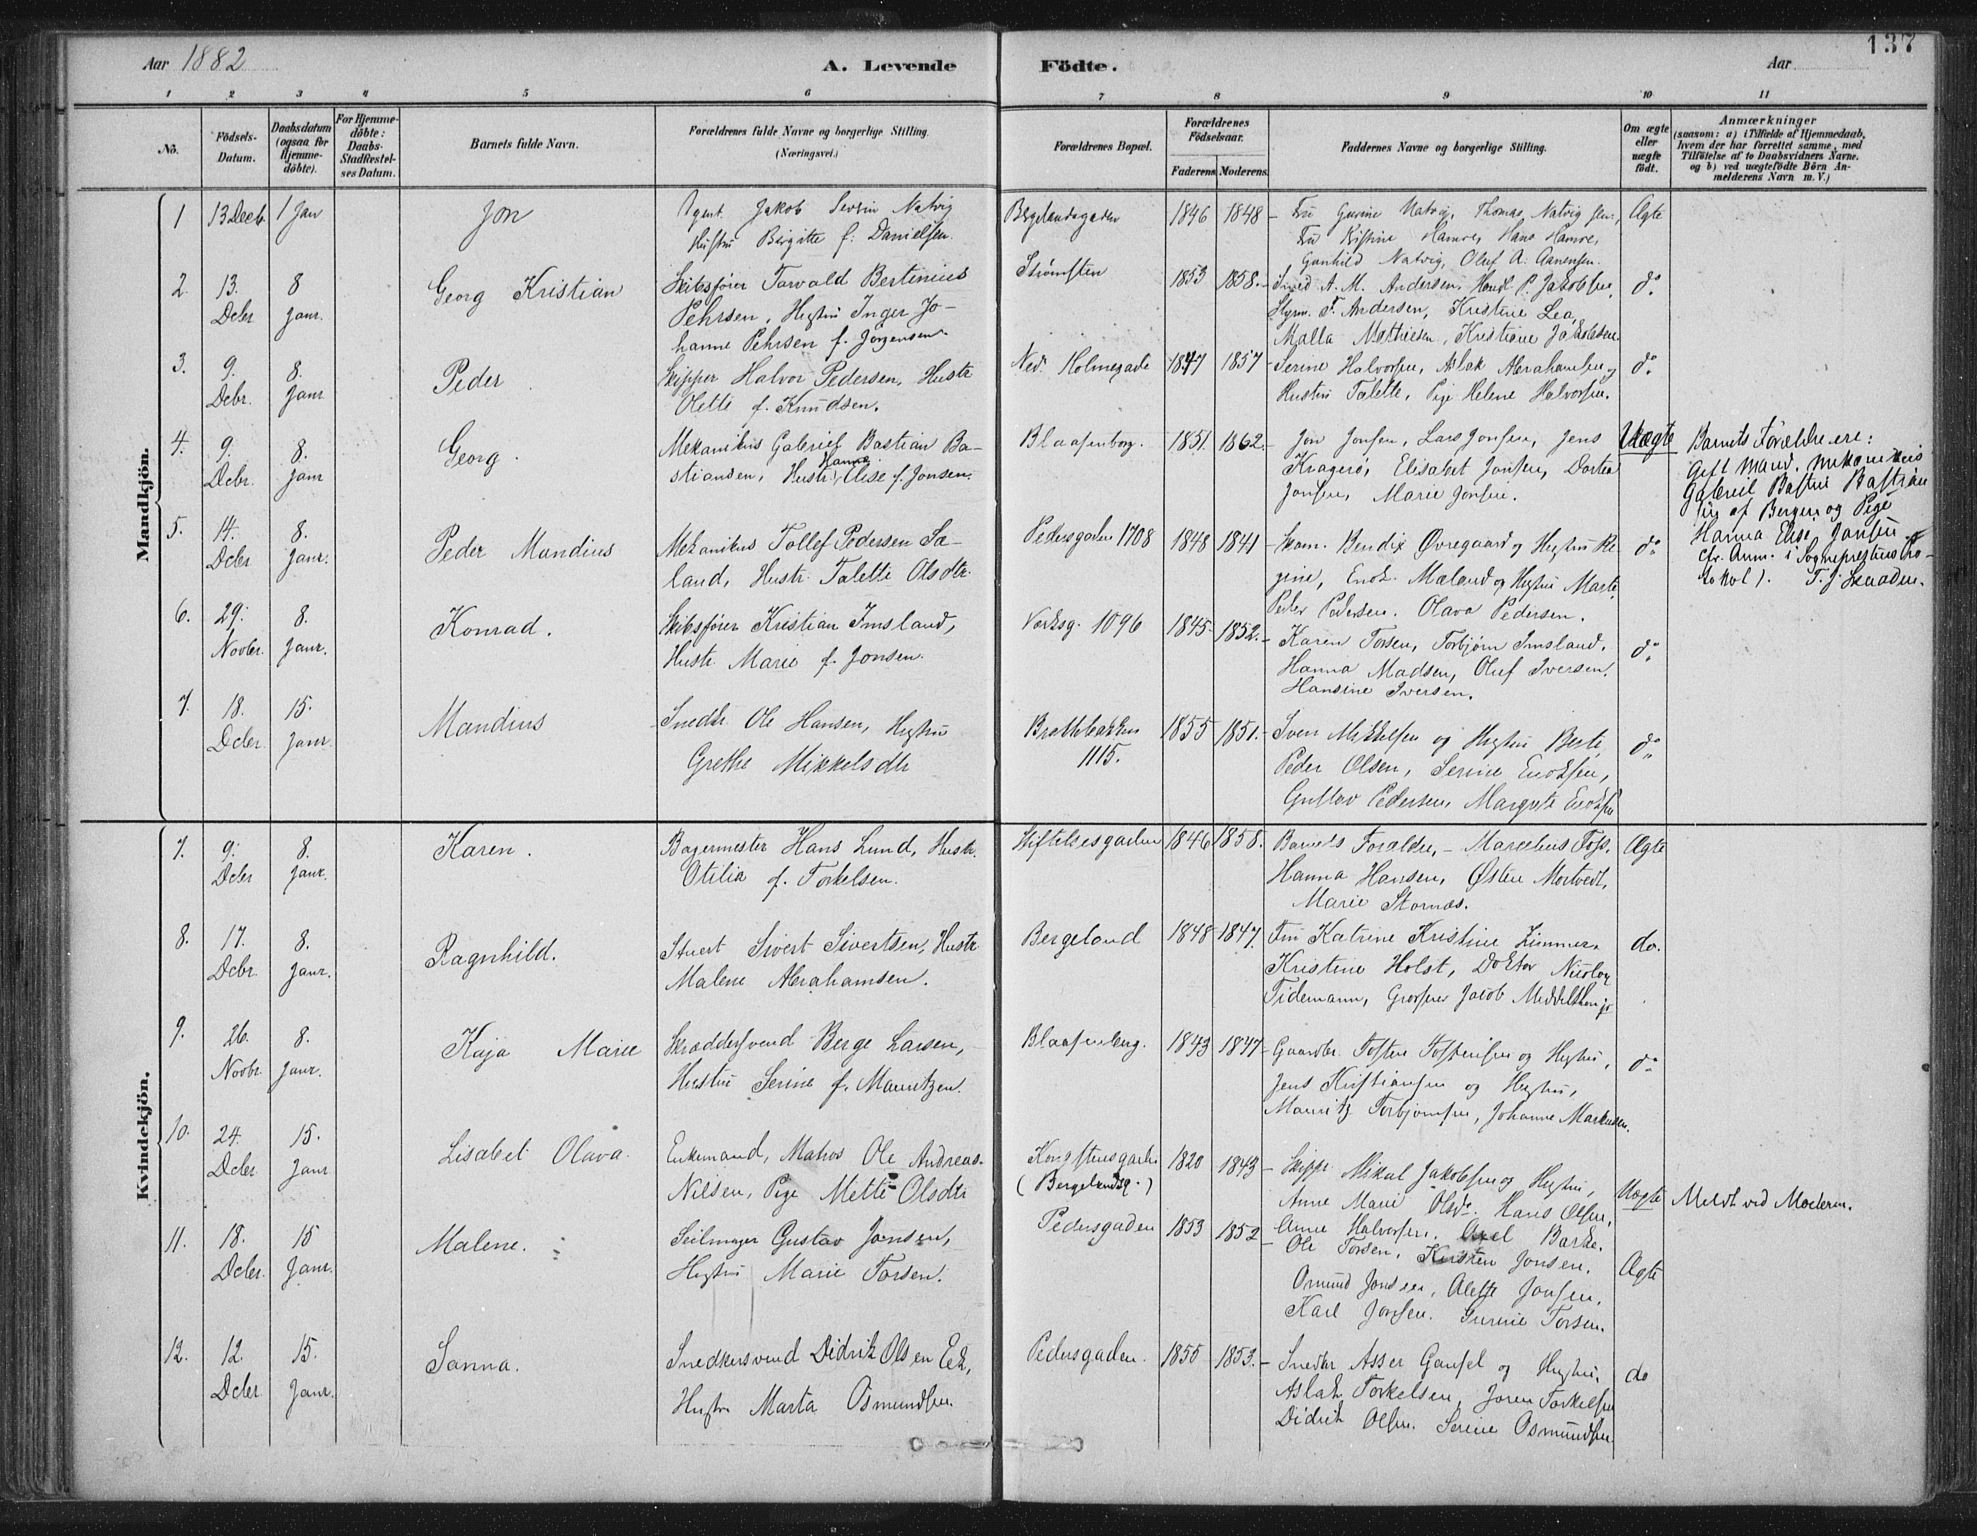 137
Aar 1882
A. Levende
Födte.
Aar
1 2 3 4 5 6 7 8 9 10 11
No.
Födsels-Datum.
Daabsdatum (ogsaa for Hjemmedöbte).
For Hjemmedöbte: Daabs-Stadfæstelses Datum.
Barnets fulde Navn.
Forældrenes fulde Navne og borgerlige Stilling.
(Næringsvei.)
Forældrenes Bopæl.
Forældrenes Födselsaar.
Faderens. Moderens.
Faddernes Navne og borgerlige Stilling.
Om ægte eller uægte födt.
Anmærkninger
(saasom: a) i Tilfælde af Hjemmedaab, hvem der har forrettet samme, med Tilföielse af to Daabsvidners Navne, og b) ved uægtefödte Börn Anmelderens Navn m. V.)
Mandkjön.
1 13 Decb. 1 Jan Jon
Agent Jakob Severin Natvig
Hustru Birgitte f. Danielsen.
Bergelandsgaden 1846 1848
Fru Gurine Natvig, Thomas Natvig jun,
Fru Kistine Hamre, Hans Hamre,
Gunhild Natvig, Oluf A. Aanensen.
Ægte
2. 13. Dcbr 8 Janr. Georg Kristian
Skibsfører Torvald Bertinius
Pehrsen, Hustru Inger Jo-
hanne Pehrsen f. Jørgensen.
Strømsten 1853 1858.
Smed A. M. Andersen, Handl. P. Jakobsen,
Styrm. F. Andersen, Kristine Lea,
Malla Mathiesen, Kristiane Jakobsen.
do
3. 9. Debr. 8. Janr Peder
Skipper Halvor Pedersen, Hustr
Olette f. Knudsen.
Ned. Holmegade 1847 1857
Serine Halvorsen, Aslak Abrahamsen og
Hustru Talette, Pige Helene Halvorsen.
do
4. 9. Debr. 8. Janr Georg.
Mekanikus Gabriel Bastian Ba-
stiansen, Hustr. Hanna Elise f. Jonsen.
Blaasenborg. 1851. 1862.
Jon Jonsen, Lars Jonsen, Jens
Kragerø, Elisabet Jonsen, Dortea
Jonsen, Marie Jonsen.
Uægte
Barnets Forældre ere:
Gift Mand, Mekanikus
Gabriel Bastian Bastian
sen af Bergen og Pige
Hanna Elise Jonsen
cfr. Anm. i Sognepræstens Pro-
tokol).
5. 14. Dcbr 8. Janr. Peder Mandius
Mekanikus Tollef Pedersen Sa-
land, Hustr. Talette Olsdtr.
Pedersgaden 1708 1848 1841
Skom. Bendix Øvregaard og Hustru Re-
gine, Enok Maland og Hustru Marte,
Peder Pedersen. Olava Pedersen.
do
6. 29. Novbr. 8. Janr. Konrad.
Skibsfører Kristian Imsland,
Hustr. Marie f. Jonsen.
Verksg. 1096 1845. 1852.
Karen Torsen, Torbjørn Imsland,
Hanna Madsen, Oluf Iversen,
Hansine Iversen.
do
7. 18. Dcbr. 15. Janr. Mandius
Snedkr. Ole Hansen, Hustru
Grethe Mikkelsdtr
Brattebakken 1115. 1855 1851.
Sven Mikkelsen og Hustru Berte,
Peder Olsen, Serine Enoksen,
Gustav Pedersen, Margrete Enoksen
do
Kvindekjön.
7. 9. Dcbr 8. Janr. Karen.
Bagermester Hans Lund, Hustr.
Otilia f. Torkelsen.
Stiftelsesgaden 1846 1858.
Barnets Forældre, - Marcelius Foss,
Hanna Hansen, Østen Mortvedt,
Marie Stornæs.
Ægte
8. 17. Debr 8. Janr. Ragnhild.
Stuert Sivert Sivertsen, Hustr
Malene Abrahamsen.
Bergeland 1848 1847.
Fru Katrine Kristine Zimmer,
Kristine Holst, Doktor Nicolay
Tidemann, Grosserer Jacob Middelthon jr
do.
9. 26. Novbr. 8. Janr. Kaja Marie
Skræddersvend Berge Larsen,
Hustru Serine f. Mauritzen.
Blaasenberg. 1843 1847
Gaardbr. Tosten Tostensen og Hustru,
Jens Kristiansen og Hustru,
Mauritz Torbjørnsen, Johanne Markussen.
do
10. 24. Dcbr. 15. Janr Lisabet Olava.
Enkemand, Matros Ole Andreas
Nilsen, Pige Mette Olsdtr
Kongstensgaden
(Bergelandsg.) 1820 1843
Skippr Mikal Jakobsen og Hustru,
Anne Marie Olsdr. Hans Olsen,
Anne Halvorsen. Axel Barke.
Uægte
Meldt ved Moderen.
11. 18. Dcbr. 15 Janr. Malene.
Seilmager Gustav Jonsen,
Hustru Marie Torsen.
Pedersgaden 1853 1852
Ole Torsen, Kirsten Jonsen.
Osmund Jonsen, Alette Jonsen,
Karl Jonsen. Gurine Torsen.
Ægte
12. 12. Dcbr 15. Janr. Sanna.
Snedkersvend Didrik Olsen Eek,
Hustru Marta Osmundsen.
Pedersgaden. 1855 1853.
Snedker Asser Gausel og Hustru,
Aslak Torkelsen, Joren Torkelsen
Didrik Olsen. Serine Osmundsen.
do